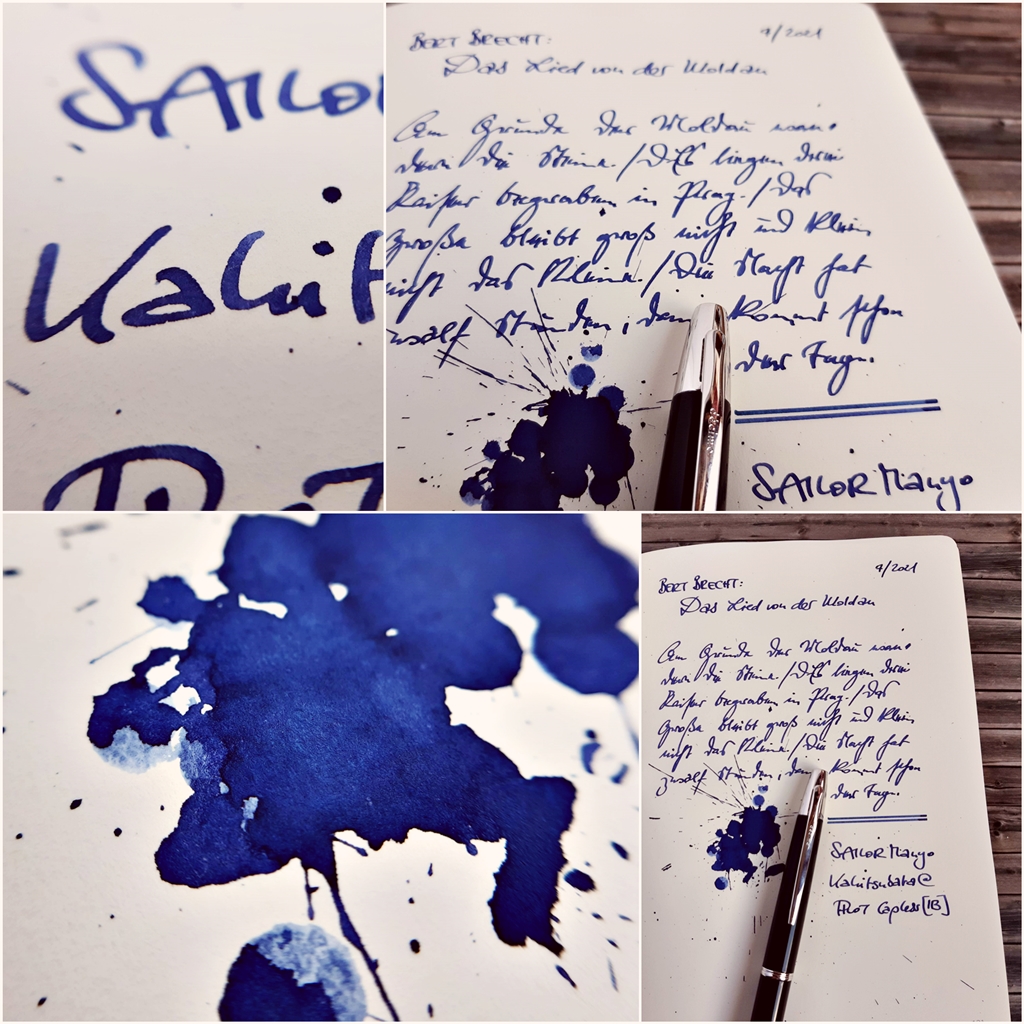 SAILO
Kakit
BERT BRECHT: 4/2021
Das Lied von der Moldau
Am Grunde der Moldau wan-
dern die Steine. / Es liegen drei
Kaiser begraben in Prag. / Das
Große bleibt groß nicht und klein
nicht das Kleine. / Die Nacht hat
zwölf Stunden, dann kommt schon
der Tag.
SAILOR Manyo
BERT BRECHT: 4/2021
Das Lied von der Moldau
Am Grunde der Moldau wan-
dern die Steine. / Es liegen drei
Kaiser begraben in Prag. / Das
Große bleibt groß nicht und klein
nicht das Kleine. / Die Nacht hat
zwölf Stunden, dann kommt schon
der Tag.
SAILOR Manyo
Kakitsubata @
PILOT Capless [B]